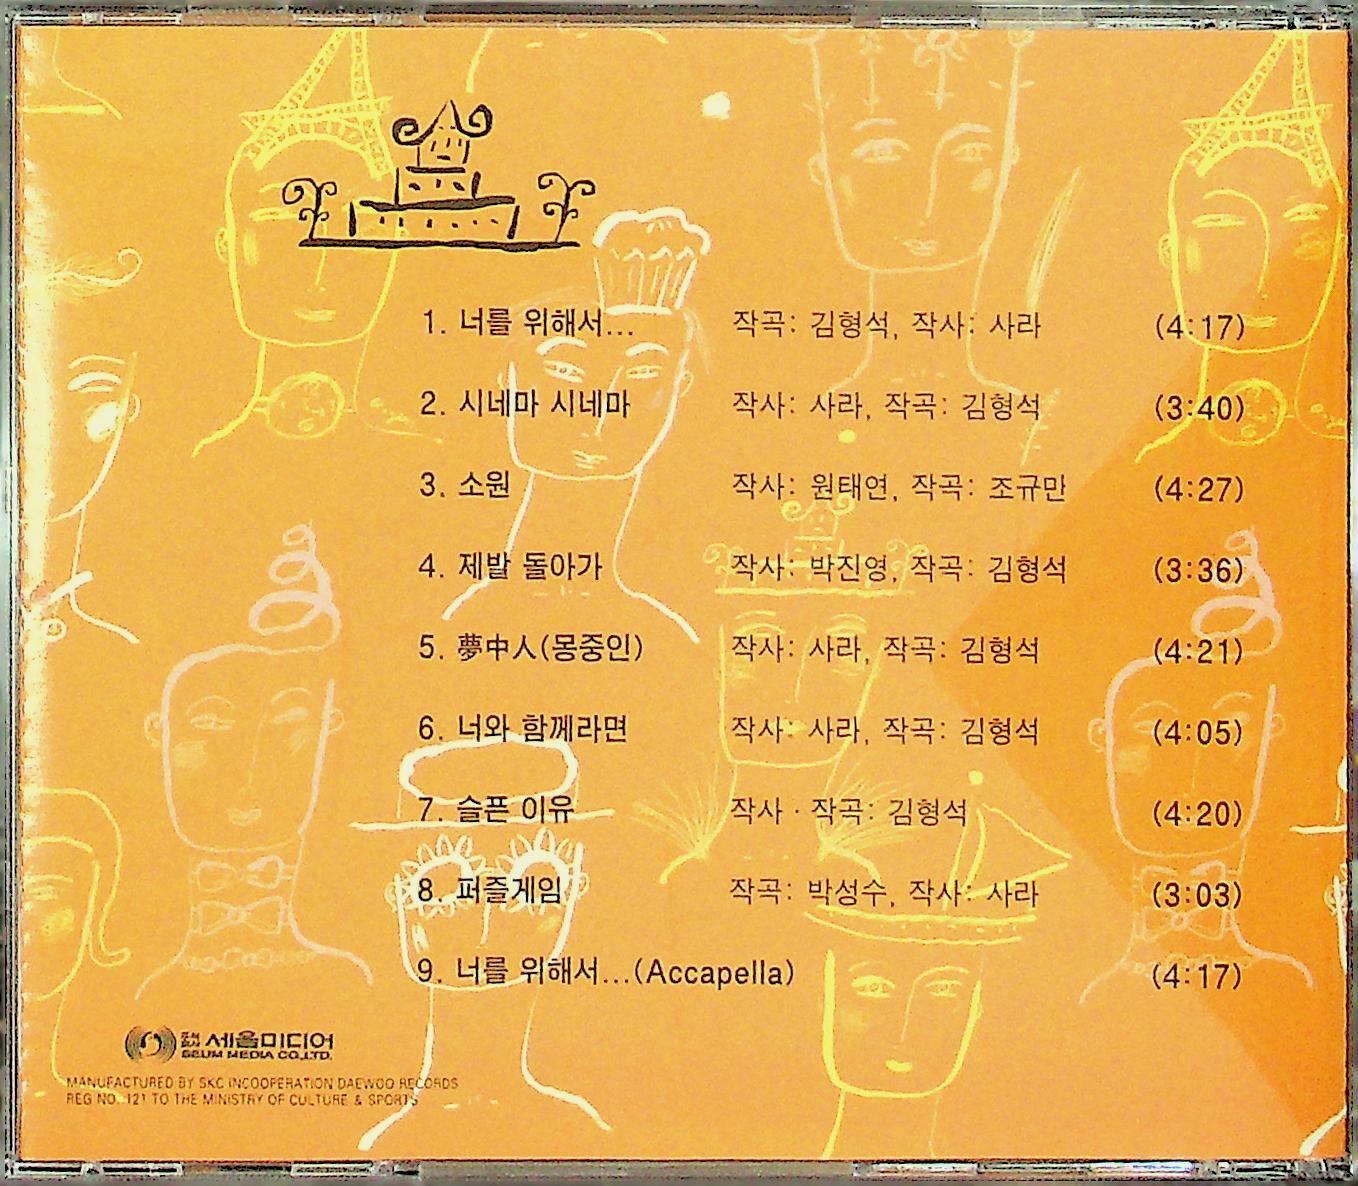 1. 너를 위해서... 작곡: 김형석, 작사: 사라 (4:17)
2. 시네마 시네마 작사: 사라, 작곡: 김형석 (3:40)
3. 소원 작사: 원태연, 작곡: 조규만 (4:27)
4. 제발 돌아가 작사: 박진영, 작곡: 김형석 (3:36)
5. 夢中人(몽중인) 작사: 사라, 작곡: 김형석 (4:21)
6. 너와 함께라면 작사: 사라, 작곡: 김형석 (4:05)
7. 슬픈 이유 작사 · 작곡: 김형석 (4:20)
8. 퍼즐게임 작곡: 박성수, 작사: 사라 (3:03)
9. 너를 위해서...(Accapella) (4:17)
세음미디어
SEUM MEDIA CO.,LTD.
MANUFACTURED BY SKC INCOOPERATION DAEWOO RECORDS
REG NO. 121 TO THE MINISTRY OF CULTURE & SPORTS